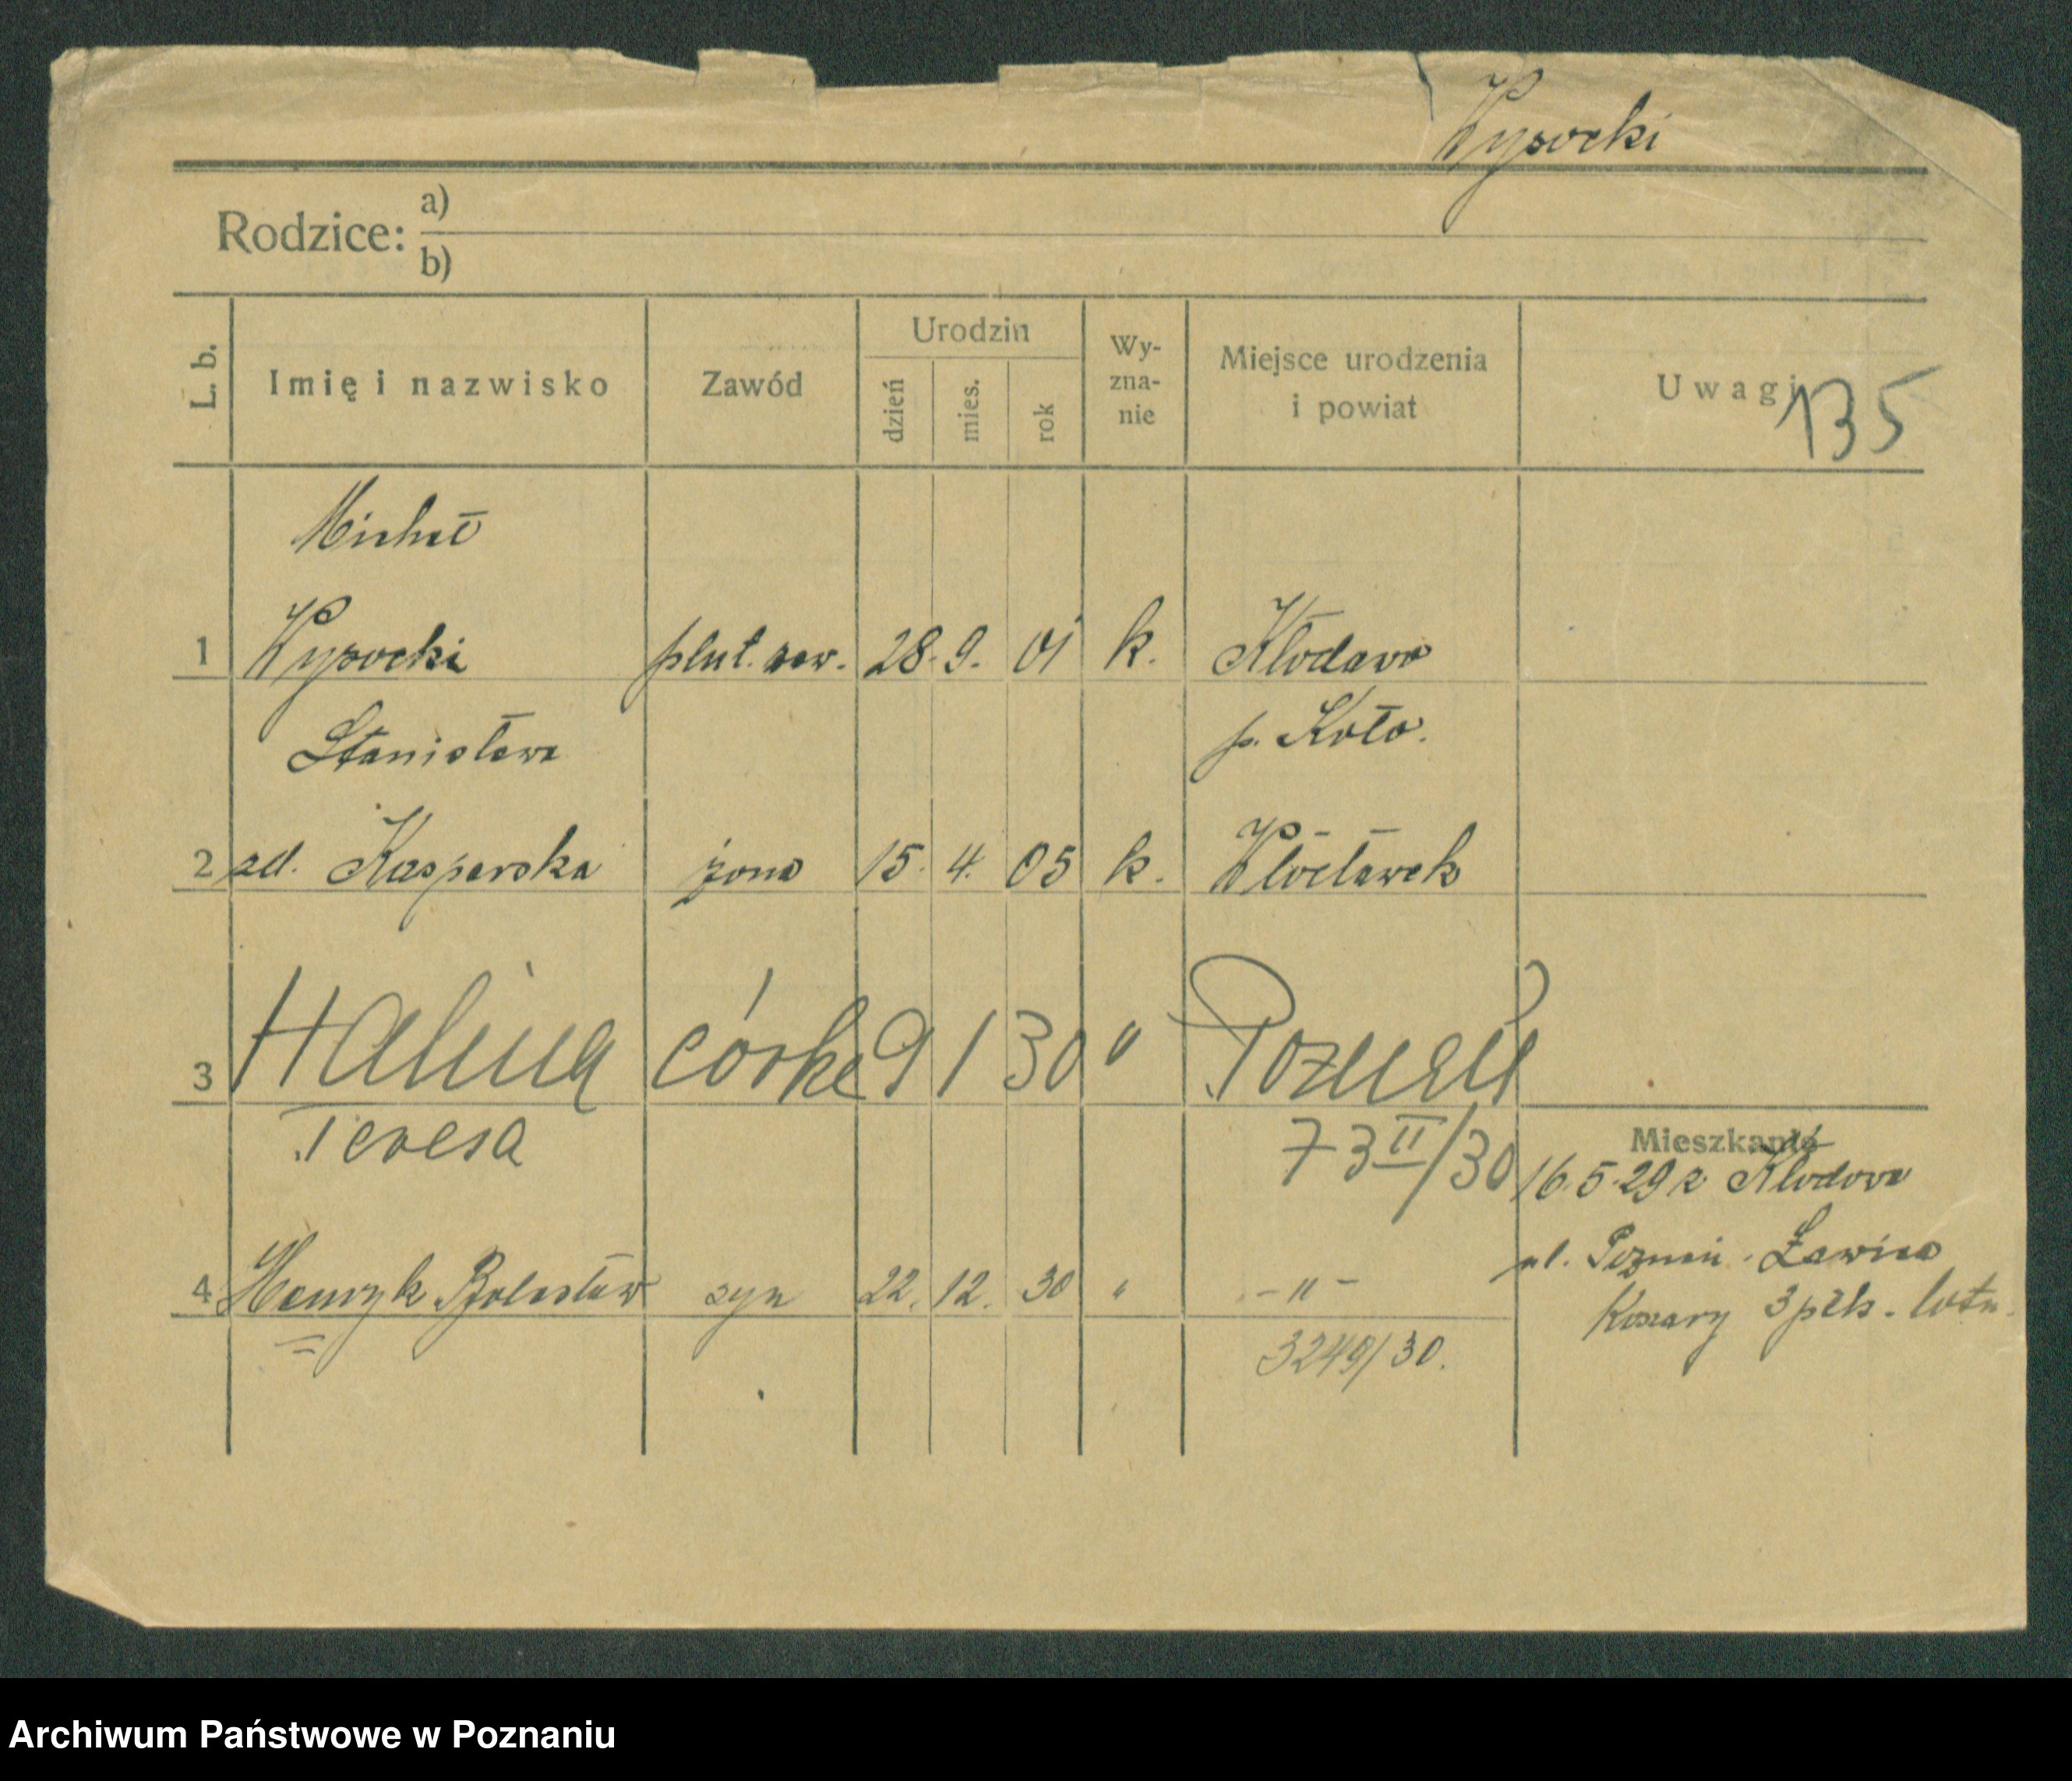 Wysocki
Rodzice: a)
b)
L. b. Imię i nazwisko Zawód Urodzin dzień mies. rok Wy-zna-nie Miejsce urodzenia i powiat Uwagi 135
Michał
1 Wysocki plut. zaw. 28. 9. 01 k. Kłodawa
Stanisława p. Koło.
2 zd. Kasperska żona 15. 4. 05 k. Włocławek
3 Halina córka 9 1 30 " Poznań
Teresa 73 II/30
Mieszkanie
16.5.29 z Kłodowa
ul. Poznań - Ławica
4 Henryk Bolesław syn 22. 12. 30 " - " -
Koszary 3 płk. lotn.
3249/30.
Archiwum Państwowe w Poznaniu